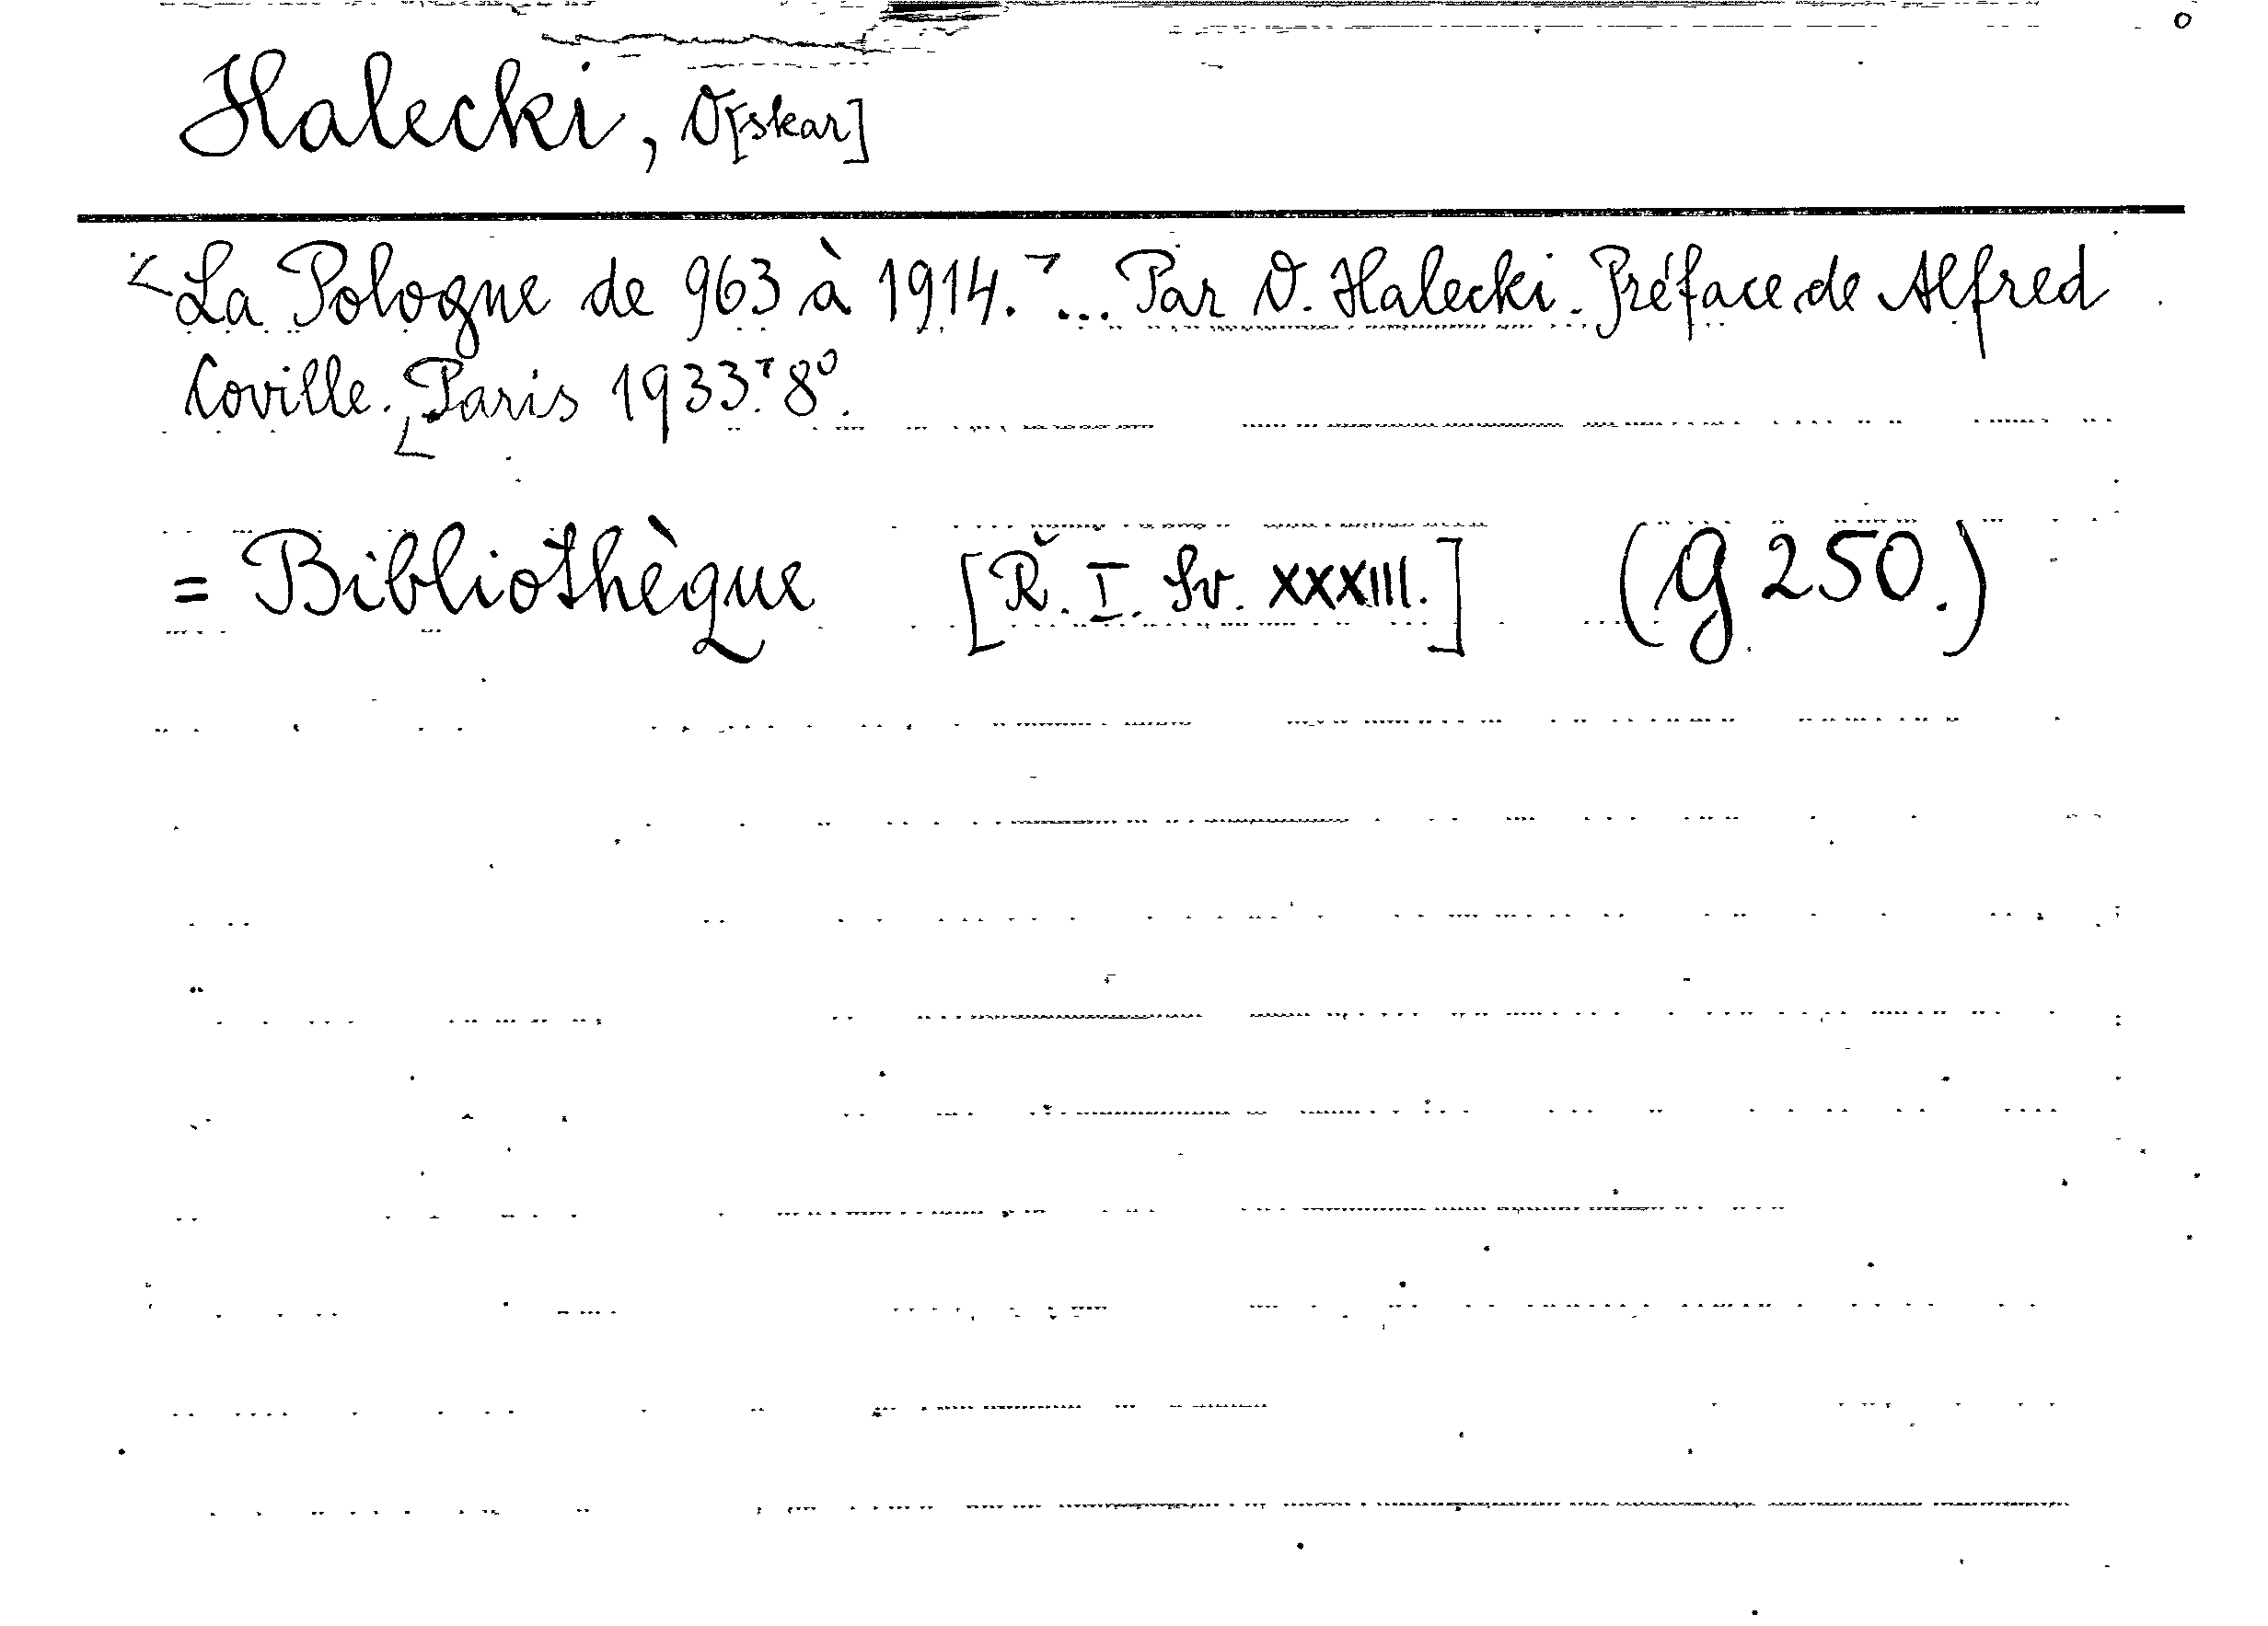 Halecki, O[skar]
La Pologne de 963 à 1914. ... Par O. Halecki. Préface de Alfred
Coville. Paris 1933. 8°.
= Bibliothèque [Ř. I. Sv. XXXIII.] (G 250.)